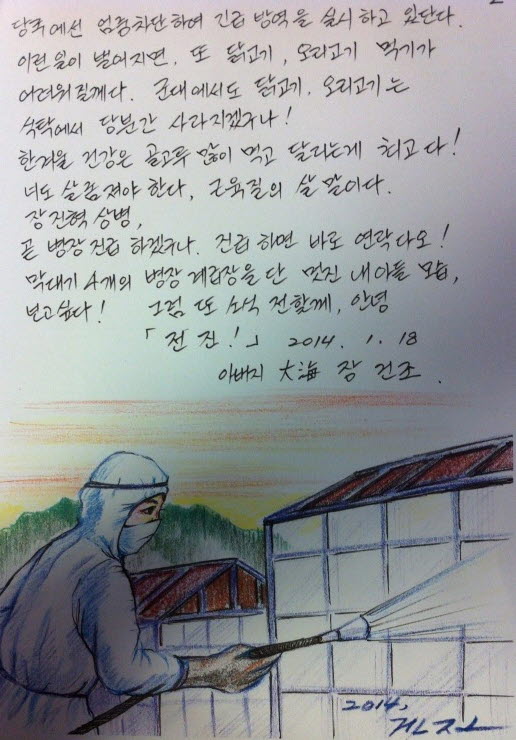 당국에선 엄중차단하여 긴급 방역을 실시하고 있단다.
이런일이 벌어지면, 또 닭고기, 오리고기 먹기가
어려워질게다. 군대에서도 닭고기, 오리고기는
식탁에서 당분간 사라지겠구나!
한겨울 건강은 골고루 많이 먹고 달리는게 최고다!
너도 살 좀 쪄야 한다, 근육질의 살 말이다.
장진혁 상병,
곧 병장 진급 하겠구나. 진급 하면 바로 연락다오!
막대기 4개의 병장 계급장을 단 멋진 내아들 모습,
보고싶다! 그럼 또 소식 전할께, 안녕
「전진!」 2014. 1. 18
아버지 大海 장건조.
2014,